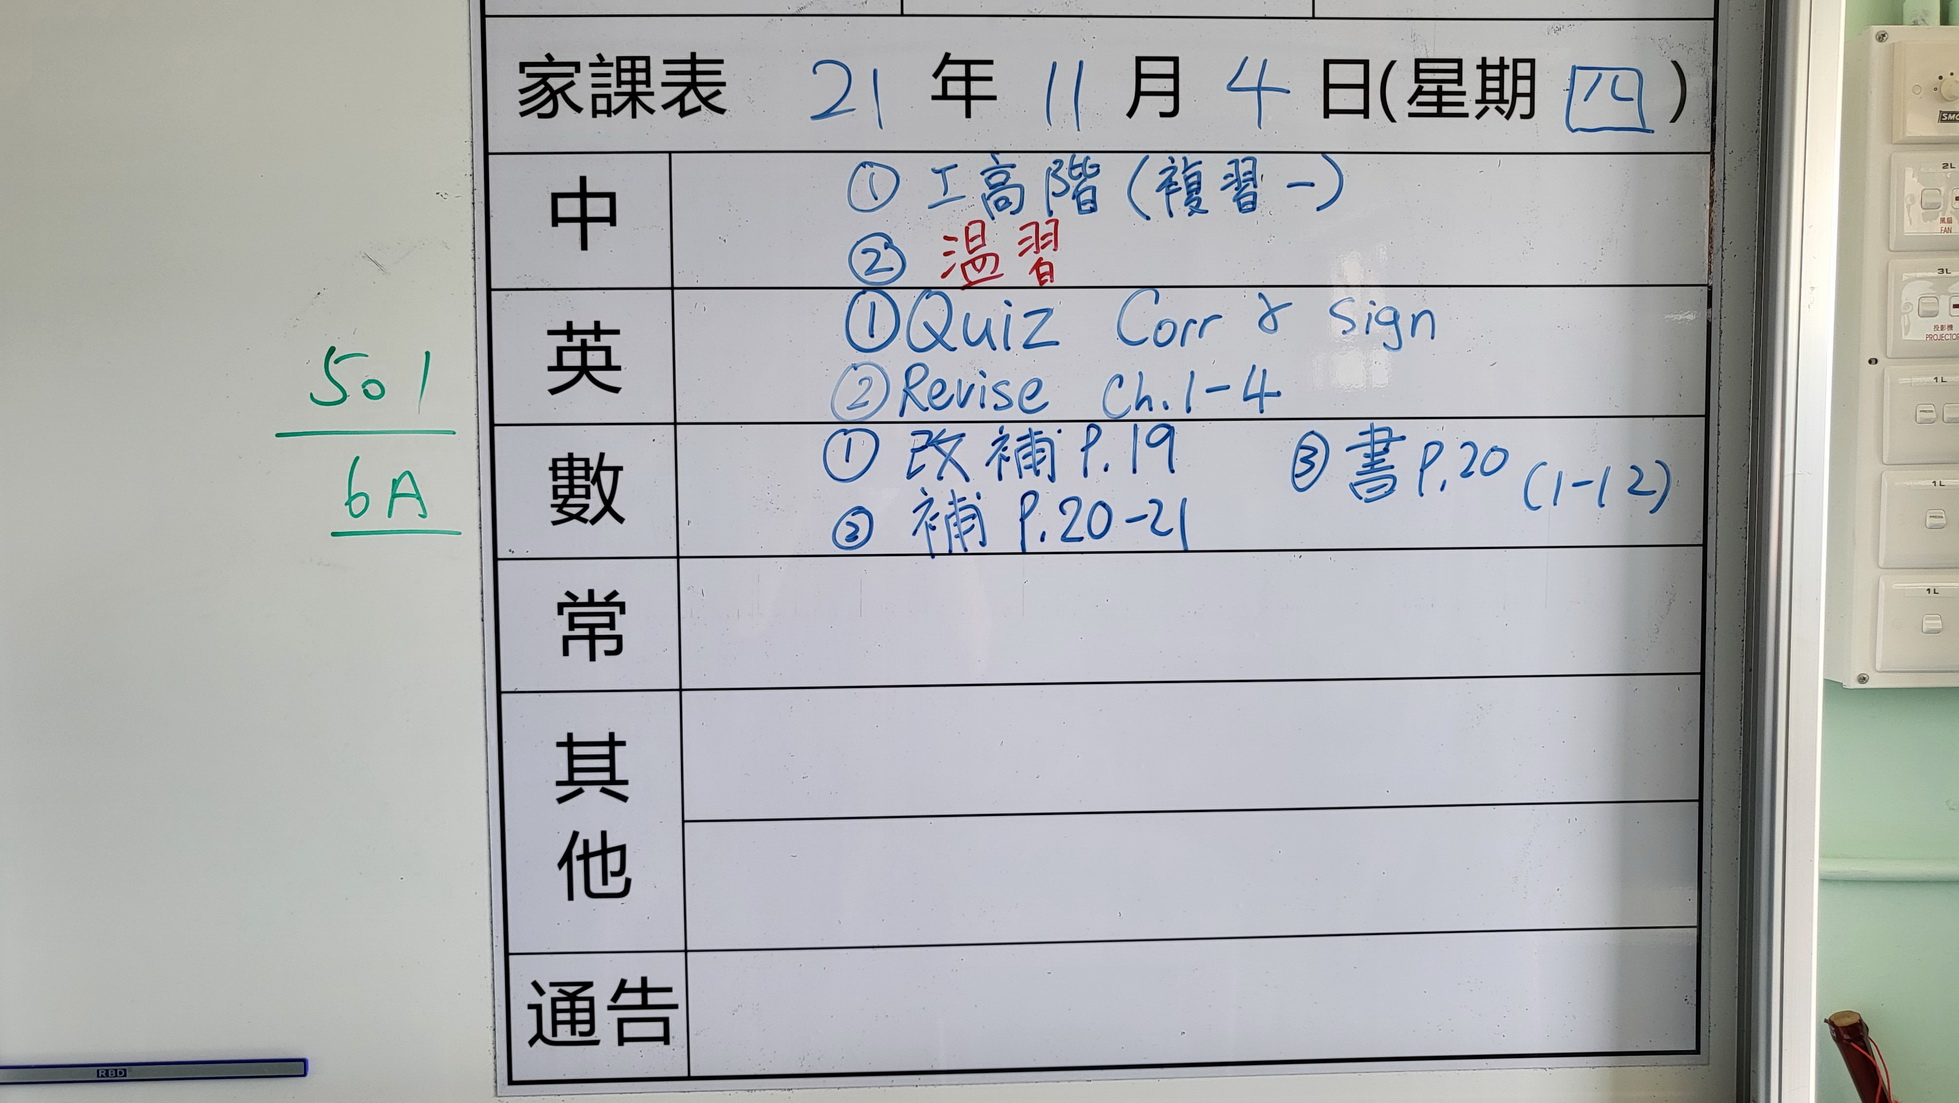 家課表 21 年 11 月 4 日(星期 四 )
中
① 工高階 (複習一)
② 温習
英
① Quiz Corr & sign
② Revise Ch.1-4
數
① 改補 P.19
② 補 P.20-21
③ 書 P.20 (1-12)
常
其他
通告
501
6A
RBD
2L
風扇
FAN
3L
投影機
PROJECTOR
1L
1L
1L